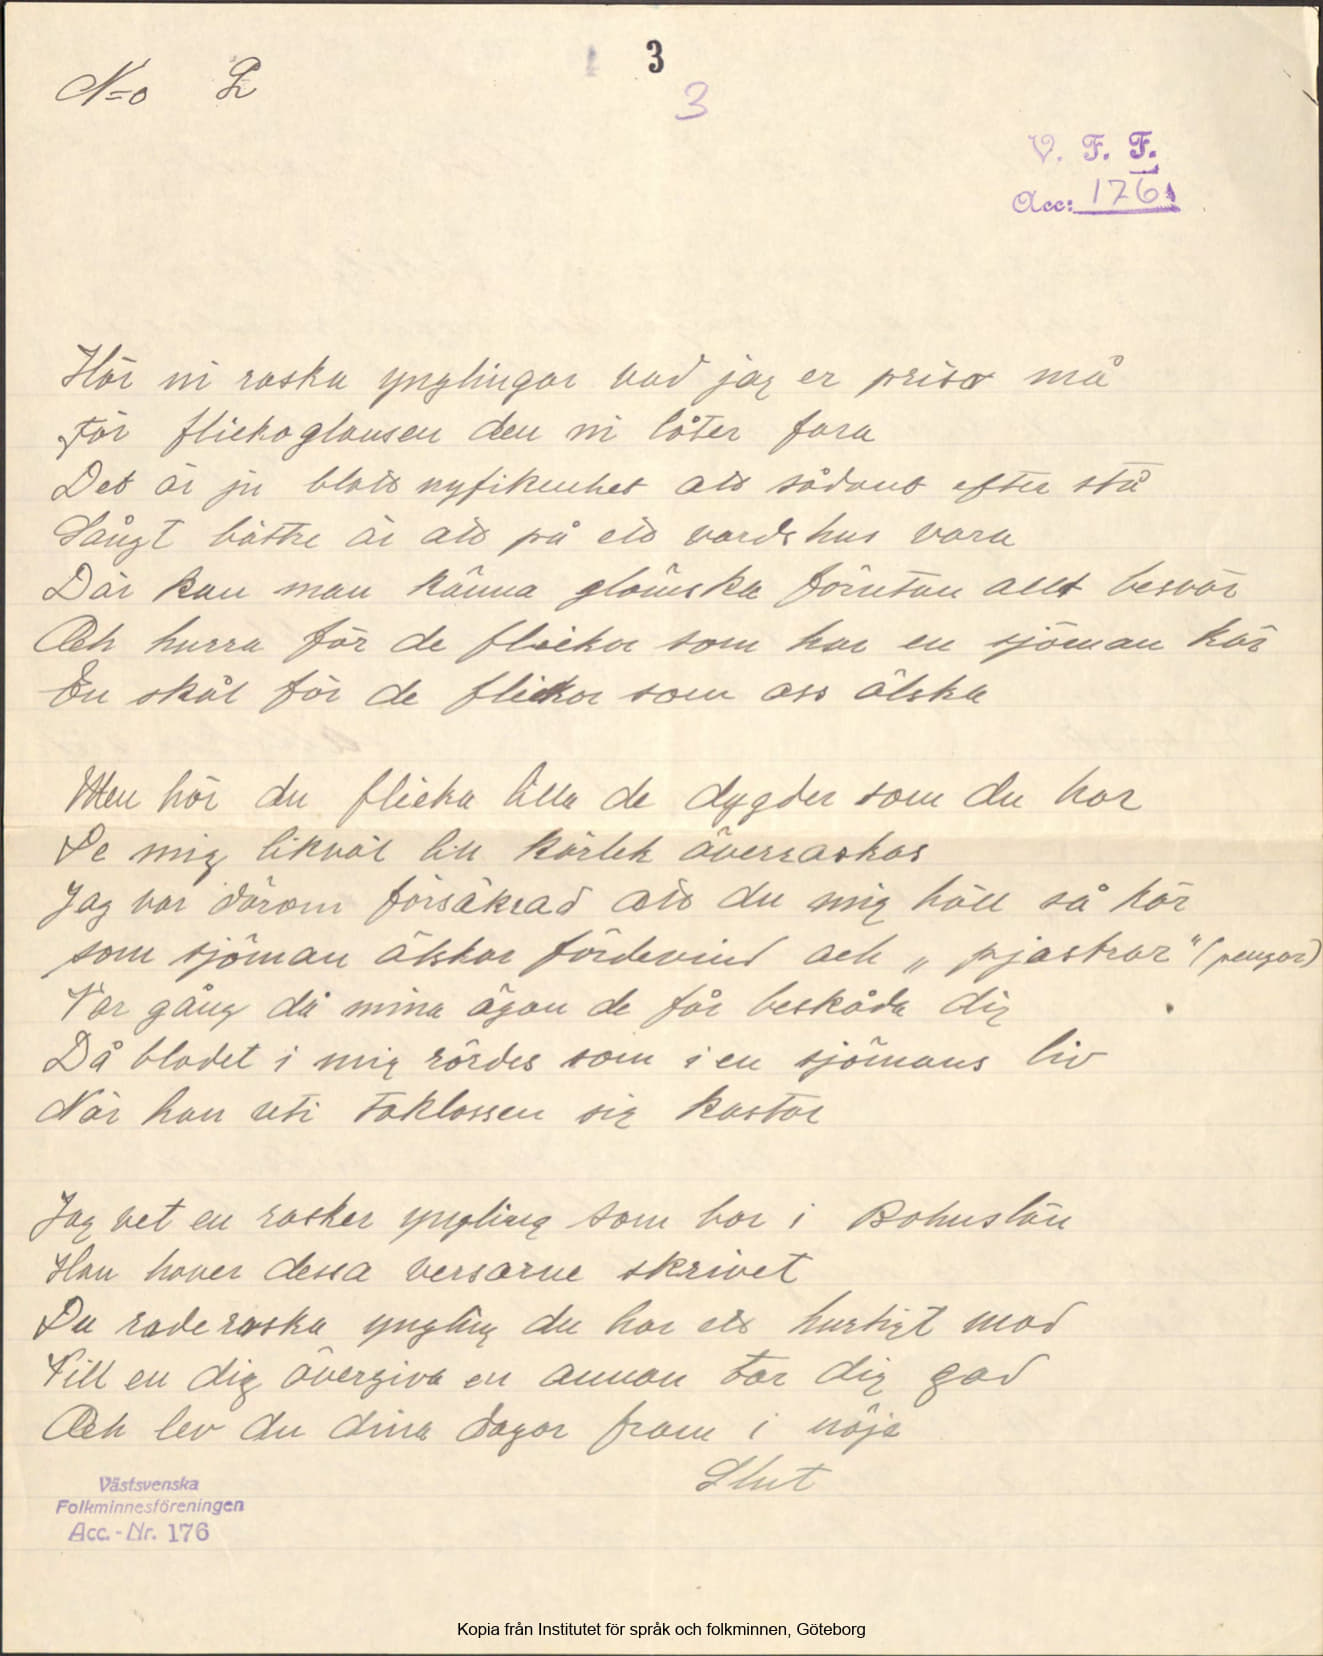 3
N=o 2
3
V. F. F.
Acc: 176
Hör ni raska ynglingar vad jag er prisa må
För flickaglansen den ni låter fara
Det är ju blott nyfikenhet att sådant efter stå
Långt bättre är att på ett vardshus vara
Där kan man känna glämska förutan allt besvär
Och hurra för de flickor som har en sjöman kär
En skål för de flickor som oss älska
Men hör du flicka lilla de dygder som du har
Se mig likväl till kärlek överraskas
Jag var därom försäkrad att du mig höll så kär
som sjöman älskar fördevind och „pjastrar” (pengar)
Var gång då mina ögon de får beskåda dig
Då blodet i mig rördes som i en sjömans liv
När han uti taklassen sig kastar
Jag vet en rasker yngling som bor i Bohuslän
Han haver dessa versarne skrivet
Du rade raska yngling du har ett hurtigt mod
Vill en dig övergiva en annan tar dig god
Och lev du dina dagar fram i nöje
Slut
Västsvenska
Folkminnesföreningen
Acc.-Nr. 176
Kopia från Institutet för språk och folkminnen, Göteborg